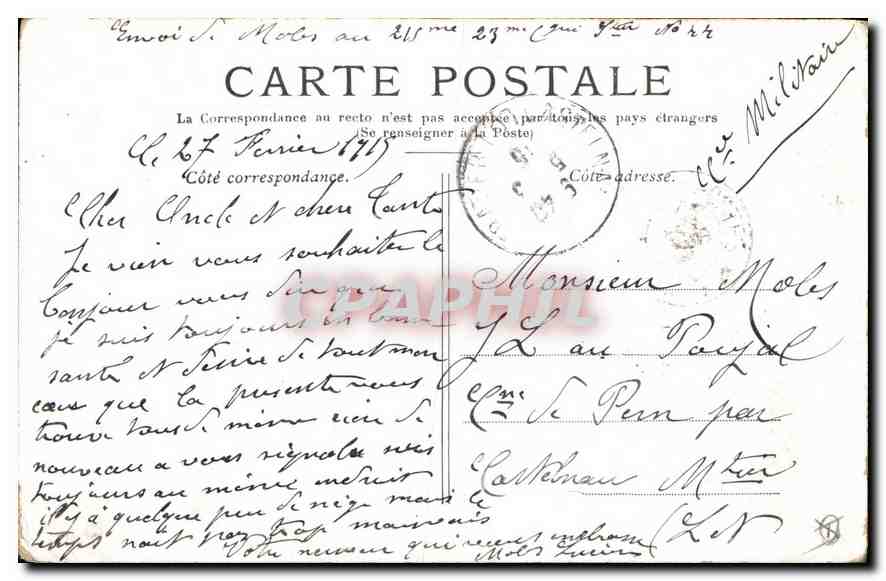 Envoi de Moles au 215me 23me Cgnie Steur No 44
CARTE POSTALE
La Correspondance au recto n'est pas acceptée par tous les pays étrangers
(Se renseigner à la Poste)
Cre Militaire
Le 27 Fevrier 1915
Côté correspondance.
Côté adresse.
Cher Oncle et chere Tante
Je vien vous souhaiter le
bonjour vous dire que
je suis toujours en bone
santé et desire de tout mon
cœur que la presente vous
trouve tous de même rien de
nouveau a vous signale suis
toujours au même endroit
il y à quelque peu de neige mais le
temps nait pas trop mauvais
Votre neuveux qui vous embrasse
Moles Lucien
Monsieur Moles
JL au Poujal
Cne de Pern par
Castelnau Mtier
(L N
CPAPHIL